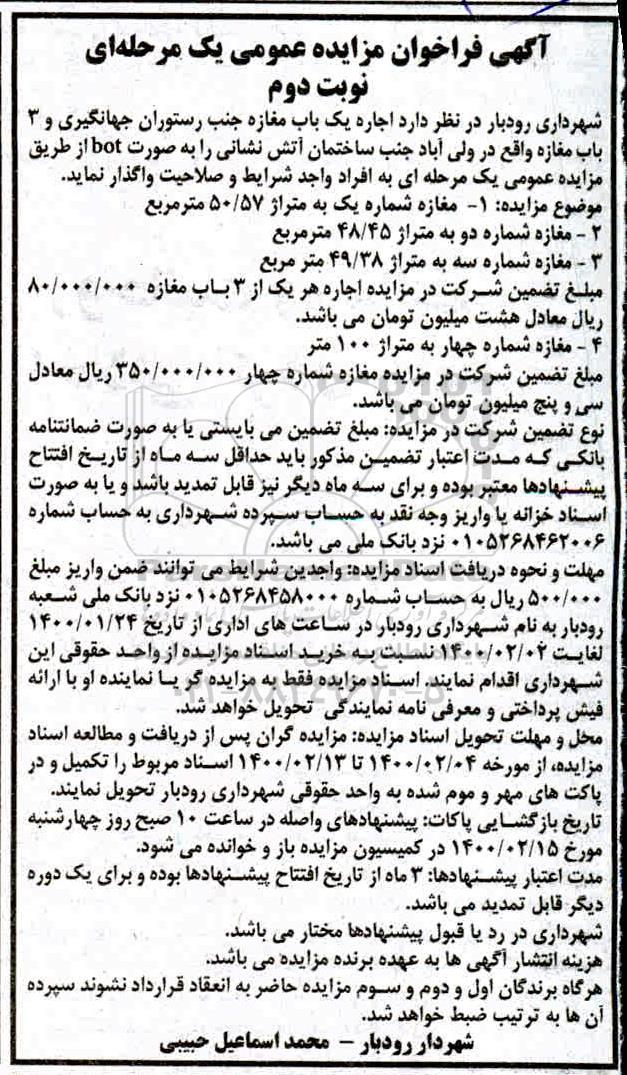 آگهی فراخوان مزایده عمومی یک مرحله‌ای
نوبت دوم
شهرداری رودبار در نظر دارد اجاره یک باب مغازه جنب رستوران جهانگیری و ۳
باب مغازه واقع در ولی آباد جنب ساختمان آتش نشانی را به صورت bot از طریق
مزایده عمومی یک مرحله ای به افراد واجد شرایط و صلاحیت واگذار نماید.
موضوع مزایده: ۱- مغازه شماره یک به متراژ ۵۰/۵۷ مترمربع
۲- مغازه شماره دو به متراژ ۴۸/۴۵ مترمربع
۳- مغازه شماره سه به متراژ ۴۹/۳۸ متر مربع
مبلغ تضمین شرکت در مزایده اجاره هر یک از ۳ باب مغازه ۸۰/۰۰۰/۰۰۰
ریال معادل هشت میلیون تومان می باشد.
۴- مغازه شماره چهار به متراژ ۱۰۰ متر
مبلغ تضمین شرکت در مزایده مغازه شماره چهار ۳۵۰/۰۰۰/۰۰۰ ریال معادل
سی و پنج میلیون تومان می باشد.
نوع تضمین شرکت در مزایده: مبلغ تضمین می بایستی یا به صورت ضمانتنامه
بانکی که مدت اعتبار تضمین مذکور باید حداقل سه ماه از تاریخ افتتاح
پیشنهادها معتبر بوده و برای سه ماه دیگر نیز قابل تمدید باشد و یا به صورت
اسناد خزانه یا واریز وجه نقد به حساب سپرده شهرداری به حساب شماره
۰۱۰۵۲۶۸۴۶۲۰۰۶ نزد بانک ملی می باشد.
مهلت و نحوه دریافت اسناد مزایده: واجدین شرایط می توانند ضمن واریز مبلغ
۵۰۰/۰۰۰ ریال به حساب شماره ۰۱۰۵۲۶۸۴۵۸۰۰۰ نزد بانک ملی شعبه
رودبار به نام شهرداری رودبار در ساعت های اداری از تاریخ ۱۴۰۰/۰۱/۲۴
لغایت ۱۴۰۰/۰۲/۰۲ نسبت به خرید اسناد مزایده از واحد حقوقی این
شهرداری اقدام نمایند. اسناد مزایده فقط به مزایده گر یا نماینده او با ارائه
فیش پرداختی و معرفی نامه نمایندگی تحویل خواهد شد.
محل و مهلت تحویل اسناد مزایده: مزایده گران پس از دریافت و مطالعه اسناد
مزایده، از مورخه ۱۴۰۰/۰۲/۰۴ تا ۱۴۰۰/۰۲/۱۳ اسناد مربوط را تکمیل و در
پاکت های مهر و موم شده به واحد حقوقی شهرداری رودبار تحویل نمایند.
تاریخ بازگشایی پاکات: پیشنهادهای واصله در ساعت ۱۰ صبح روز چهارشنبه
مورخ ۱۴۰۰/۰۲/۱۵ در کمیسیون مزایده باز و خوانده می شود.
مدت اعتبار پیشنهادها: ۳ ماه از تاریخ افتتاح پیشنهادها بوده و برای یک دوره
دیگر قابل تمدید می باشد.
شهرداری در رد یا قبول پیشنهادها مختار می باشد.
هزینه انتشار آگهی ها به عهده برنده مزایده می باشد.
هرگاه برندگان اول و دوم و سوم مزایده حاضر به انعقاد قرارداد نشوند سپرده
آن ها به ترتیب ضبط خواهد شد.
شهردار رودبار - محمد اسماعیل حبیبی